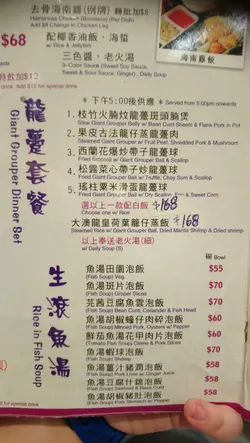 去骨海南雞(例牌)轉飽加$8
Hainanese Chicken (Boneless) (Per Dish)
Add $8 Change to
$68
配椰香油飯、海蜇
w/ Rice & Jellyfish
三色醬、老火湯
3-Color Sauce (Sweet Soy Sauce,
Sweet & Sour Sauce, Ginger), Daily Soup)
海南雞飯
drink. Add $12 for special drink
龍躉套餐
Giant Grouper Dinner Set
* 下午5:00後供應 * Served from 5:00pm onwards
1. 枝竹火腩炆龍躉斑腩煲
Stew Giant Grouper Belly w/ Bean Curd Sheets & Flank Pork in Pot
2. 果皮古法龍仔蒸龍躉肉
Steamed Giant Grouper w/ Fruit Peel, Shredded Pork & Mushroom
3. 西蘭花爆炒帶子龍躉球
Fried Giant Grouper Ball & Scallop
4. 松露菜心帶子炒龍躉球
Fried Giant Grouper Ball w/ Truffle, Choy Sum & Scallop
5. 瑤柱粟米滑蛋龍躉球
Fried Giant Grouper Ball w/ Dry Scallop, Corn & Sweet Corn
選以上一款配白飯 $168
Choose one w/ Rice
大澳龍皇荷葉龍仔蒸飯 $168
Steamed Rice w/ Giant Grouper Ball, Dried Mantis Shrimp & Dried shrimp
以上奉送老火湯(細)
w/ Daily Soup (S)
生滾魚湯
Rice in Fish Soup
碗 Bowl
魚湯田園泡飯 $55
(Fish Soup) Veg.
魚湯斑片泡飯 $70
(Fish Soup) Grouper Slices
芫茜豆腐魚雲泡飯 $70
(Fish Soup) Bean Curd, Coriander & Fish Head
魚湯胡椒蠔仔肉碎泡飯 $60
(Fish Soup) Minced Pork, Oysters w/ Pepper
鮮茄魚湯花甲肉片泡飯 $60
(Tomato Fish Soup) Clams & Pork Slices
魚湯蝦球泡飯 $70
(Fish Soup) Shrimp
魚湯薑汁豬潤泡飯 $58
(Fish Soup) Pork Liver w/ Ginger Juice
魚湯豆腐什錦泡飯 $58
(Fish Soup) Seafood & Bean Curd
魚湯胡椒豬肚泡飯 $58
(Fish Soup) Pork Stomach w/ Pepper
for special drink